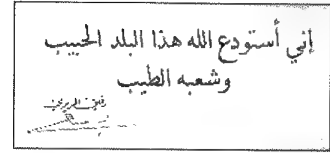 إني أستودع الله هذا البلد الحبيب
وشعبه الطيب
رفيق الحريري